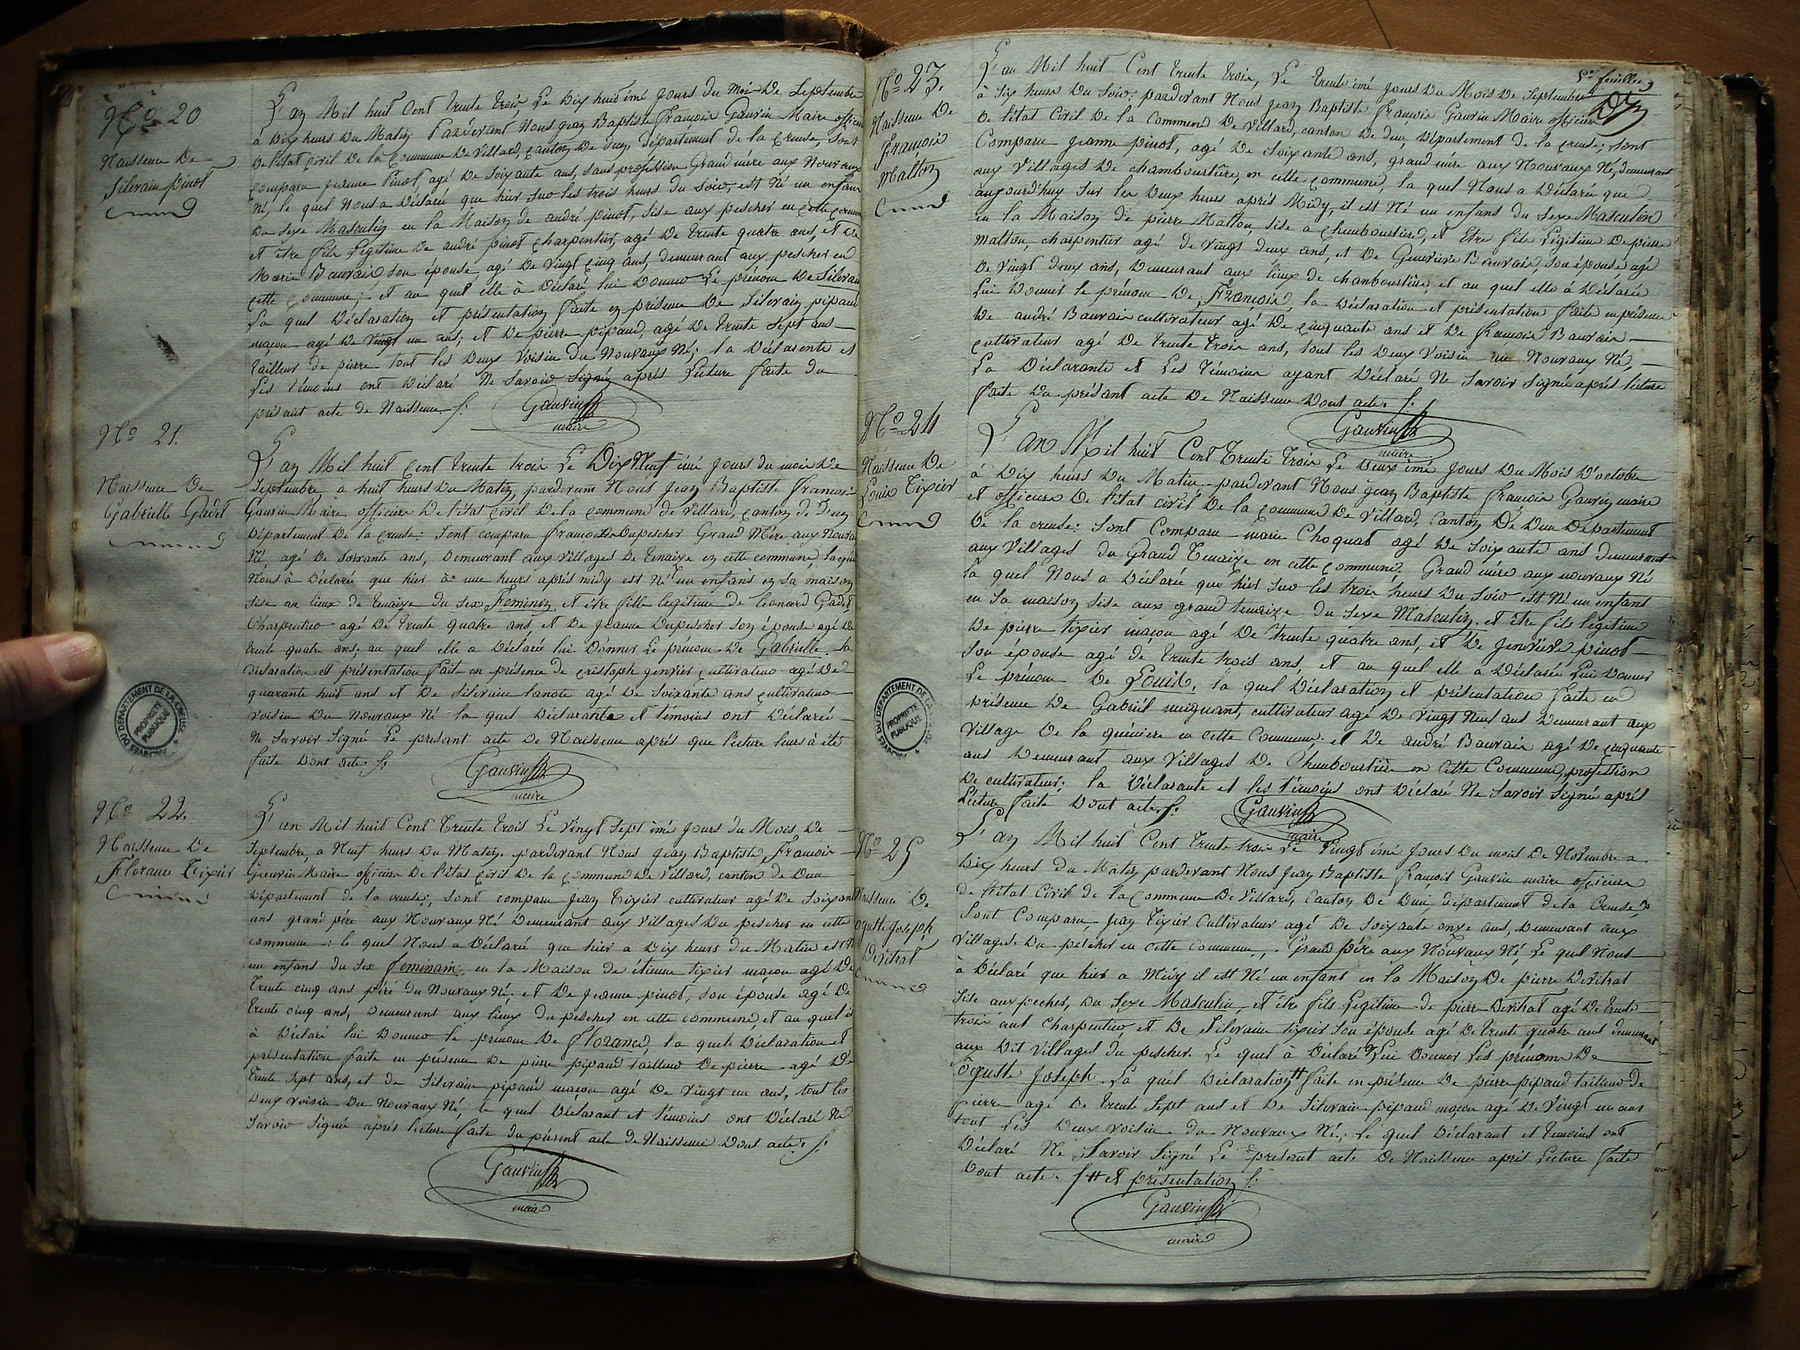 No 20
Naissence De
Silvain pinot
L'an Mil huit Cent trente trois Le Dix huit imé jours du moi De Septembre
à Dix heurs Du Matin Pardevant Nous jean Baptiste francois Gauvin Maire officier
De l'état Civil de la Commune De Villard, canton de dun, département de la creuse, Sont
comparu jeanne Pinot, agé De Soixante ans, Sans proffession Grand mère aux Nouvaux
Né, le quel Nous a Déclaré que hier Sur les trois heurs du Soir, est Né un enfans
Du Sexe Masculin en la Maison de andré pinot, Sise aux pescher en cette commune
et être fils Légitime De andré pinot charpentier, agé De trente quatre ans, et De
Marie Bauvais Son épouse, agé De Vingt cinq ans, demeurant aux pescher en
cette commune; et au quel elle à Déclaré lui Donner Le prénom De Silvain
La quel Déclaration et présentation faite en présence De Silvain pipaud
maçon agé De Vingt un ans, et De pierre pipaud, agé De trente Sept ans
tailleur de pierre tout les Deux Voisin du Nouvaux Né; la Déclarente et
Les témoins ont Déclaré Ne Savoir Signé après Lecture faite du
présent acte de Naissence f.
Gauvin
maire
No 21.
Naissence De
Gabrielle Gadet
L'an Mil huit Cent trente trois Le Dix Neuf imé jours du mois De
Septembre, a huit heurs Du Matin, pardevant Nous Jean Baptiste francois
Gauvin Maire officier De l'état Civil De la Commune de Villard, canton de dun
Département De la creuse: Sont comparu francoise Dupescher Grand Mère aux Nouvaux
Né, agé De Soixante ans, Demeurant aux Villages De tenaize en cette commune, la quel
Nous à Déclaré que hier à une heurs après midy est Né un enfans en Sa maison
Sise au lieux de tenaize du Sex Feminin, et être fille legitime de leonard Gadet
Charpentier agé De trente quatre ans et De jeanne Dupescher Son épouse agé De
trente quatre ans, au quel elle a Déclaré lui Donner Le prénom De Gabrielle la
Déclaration et présentation fait en présence de cristoph genvier cultivateur agé De
quarante huit ans et De Silvain lanote agé De Soixante ans cultivateur
Voisin Du Nouvaux Né la quel Déclarante et témoins ont Déclaré
Ne Savoir Signé Le présant acte De Naissence après que lecture leurs à été
faite Dont acte. f.
Gauvin
maire
ARCHIVES DU DÉPARTEMENT DE LA CREUSE
PROPRIÉTÉ
PUBLIQUE
No 22.
Naissence De
Florance Tixier
L'an Mil huit Cent Trente trois Le Vingt Sept imé jours du Mois De
Septembre, a Neuf heurs Du Matin. pardevant Nous jean Baptiste francois
Gauvin Maire officier De l'état Civil De la Commune De Villard, canton de Dun
Département de la creuse; Sont comparu jean tixier cultivateur agé De Soixante
ans grand père aux Nouvaux Né Demeurant aux Villages Du pescher en cette
commune: le quel Nous a Déclaré que hier a Dix heurs du Matin est Né
un enfans du Sex feminain, en la Maison De étienne tixier maçon agé De
trente cinq ans père du Nouvaux Né. et De jeanne pinot, Son épouse agé De
trente cinq ans, Demeurant aux lieux du pescher en cette commune, et au quel il
à Déclaré lui Donner le prénom De Florance, la quel Déclaration et
présentation faite en présence De pierre pipaud tailleur De pierre agé De
trente Sept ans, et de Silvain pipaud maçon agé De Vingt un ans, tout les
Deux voisin Du Nouvaux Né, le quel Déclarant et témoins ont Déclaré Ne
Savoir Signé après lecture faite du présent acte De Naissence Dont acte. f.
Gauvin
maire
5e feuillet
No 23.
Naissence De
francois
Malton
L'an Mil huit Cent trente trois, Le trente imé jours Du Mois De Septembre
à Six heurs Du Soir. pardevant Nous jean Baptiste francois Gauvin Maire officier
De l'état Civil De la Commune De Villard, canton De dun, Département De la creuse; Sont
Comparu jeanne pinot, agé De Soixante ans, grand mère aux Nouvaux Né, demeurant
aux Villages De chamboustière, en cette commune, la quel Nous a Déclaré que
aujourd'huy Sur les Deux heurs après Midy, il est Né un enfans du Sexe Masculin
en la Maison De pierre Malton Sise à chamboustière, et Etre fils Légitime De pierre
Malton, charpentier agé de Vingt deux ans, et De Genviève Bauvais, Son épouse agé
De Vingt deux ans, Demeurant aux lieux de chamboustière, et au quel elle à Déclaré
lui Donner le prénom De François la Déclaration et présentation faite en présence
De andré Bauvais cultivateur agé De cinquante ans et De francois Bauvais
cultivateur agé De trente trois ans, tout les Deux Voisin du Nouvaux Né,
La Déclarante et Les témoins ayant Déclaré Ne Savoir Signé après lecture
faite Du présant acte De Naissence Dont acte. f.
Gauvin
maire
No 24
Naissence De
Louis Tixier
L'an Mil huit Cent Trente Trois Le Deux imé jours Du Mois D'octobre
à Dix heurs Du Matin pardevant Nous jean Baptiste francois Gauvin maire
et officier De l'état civil de la commune De Villard, Canton De Dun Département
De la creuse: Sont Comparu marie Choquat agé De Soixante ans demeurant
aux Villages du Grand Tenaize en cette commune, Grand mère aux nouvaux Né
la quel Nous a Déclaré que hier Sur les trois heurs Du Soir est Né un enfans
en Sa maison Sise aux grand tenaize du Sexe Masculin. et Etre fils legitime
De pierre tixier maçon agé De trente quatre ans, et De genviève pinot
Son épouse agé de trente trois ans, et au quel elle à Déclaré Lui Donner
Le prénom De Louis, la quel Déclaration et présentation faite en
présence De Gabriel mignant, cultivateur agé De Vingt Neuf ans Demeurant aux
Village De la quinière en cette Commune, et De andré Bauvais agé De cinquante
ans Demeurant aux Villages De Chamboustière en Cette Commune, proffetion
De cultivateur; la Déclarante et les témoins ont Déclaré Ne Savoir Signé après
Lecture faite Dont acte. f.
Gauvin
maire
ARCHIVES DU DÉPARTEMENT DE LA CREUSE
PROPRIÉTÉ
PUBLIQUE
No 25
Naissence De
ogustte Joseph
Devitrat
L'an Mil huit Cent trente trois Le Vingt imé jours Du mois De Novembre a
Dix heurs du Matin pardevant Nous jean Baptiste francois Gauvin maire officier
de l'état Civil de la Commune De Villard, Canton De Dun, département de la Creuse;
Sont Comparu jean Tixier Cultivateur agé De Soixante onze ans, Demeurant aux
Villages Du pescher en cette commune, Grand père aux Nouvaux Né Le quel Nous
à Déclaré que hier a Midy il est Né un enfant en la Maison De pierre Devitrat
Sise aux pecher, Du Sexe Masculin, et être fils Legitime de pierre Devitrat agé De trente
trois ans Charpentier, et De Silvain tixier Son épouse agé De trente quatre ans demeurant
aux Dit Villages du pescher. Le quel à Déclaré Lui Donner Les prénom De
Ogustte Joseph. La quel Déclaration # faite en présence De pierre pipaud tailleur De
pierre agé De trente Sept ans et De Silvain pipaud maçon agé De Vingt un ans
tout Les Deux voisin du Nouvaux Né; Le quel Déclarant et témoins ont
Déclaré Ne Savoir Signé Le présent acte De Naissence après Lecture faite
Dont acte. f # et présentation f.
Gauvin
maire